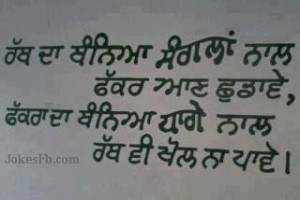 ਰੱਬ ਦਾ ਬੰਨਿਆ ਸੰਗਲਾਂ ਨਾਲ
ਫੱਕਰ ਆਣ ਛੁਡਾਵੇ,
ਫੱਕਰਾ ਦਾ ਬੰਨਿਆ ਧਾਗੇ ਨਾਲ
ਰੱਬ ਵੀ ਖੋਲ ਨਾ ਪਾਵੇ।
JokesFb.com